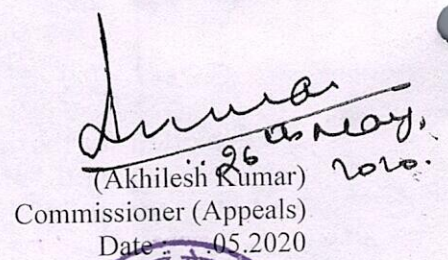 26th May,
2020.
(Akhilesh Kumar)
Commissioner (Appeals)
Date : .05.2020